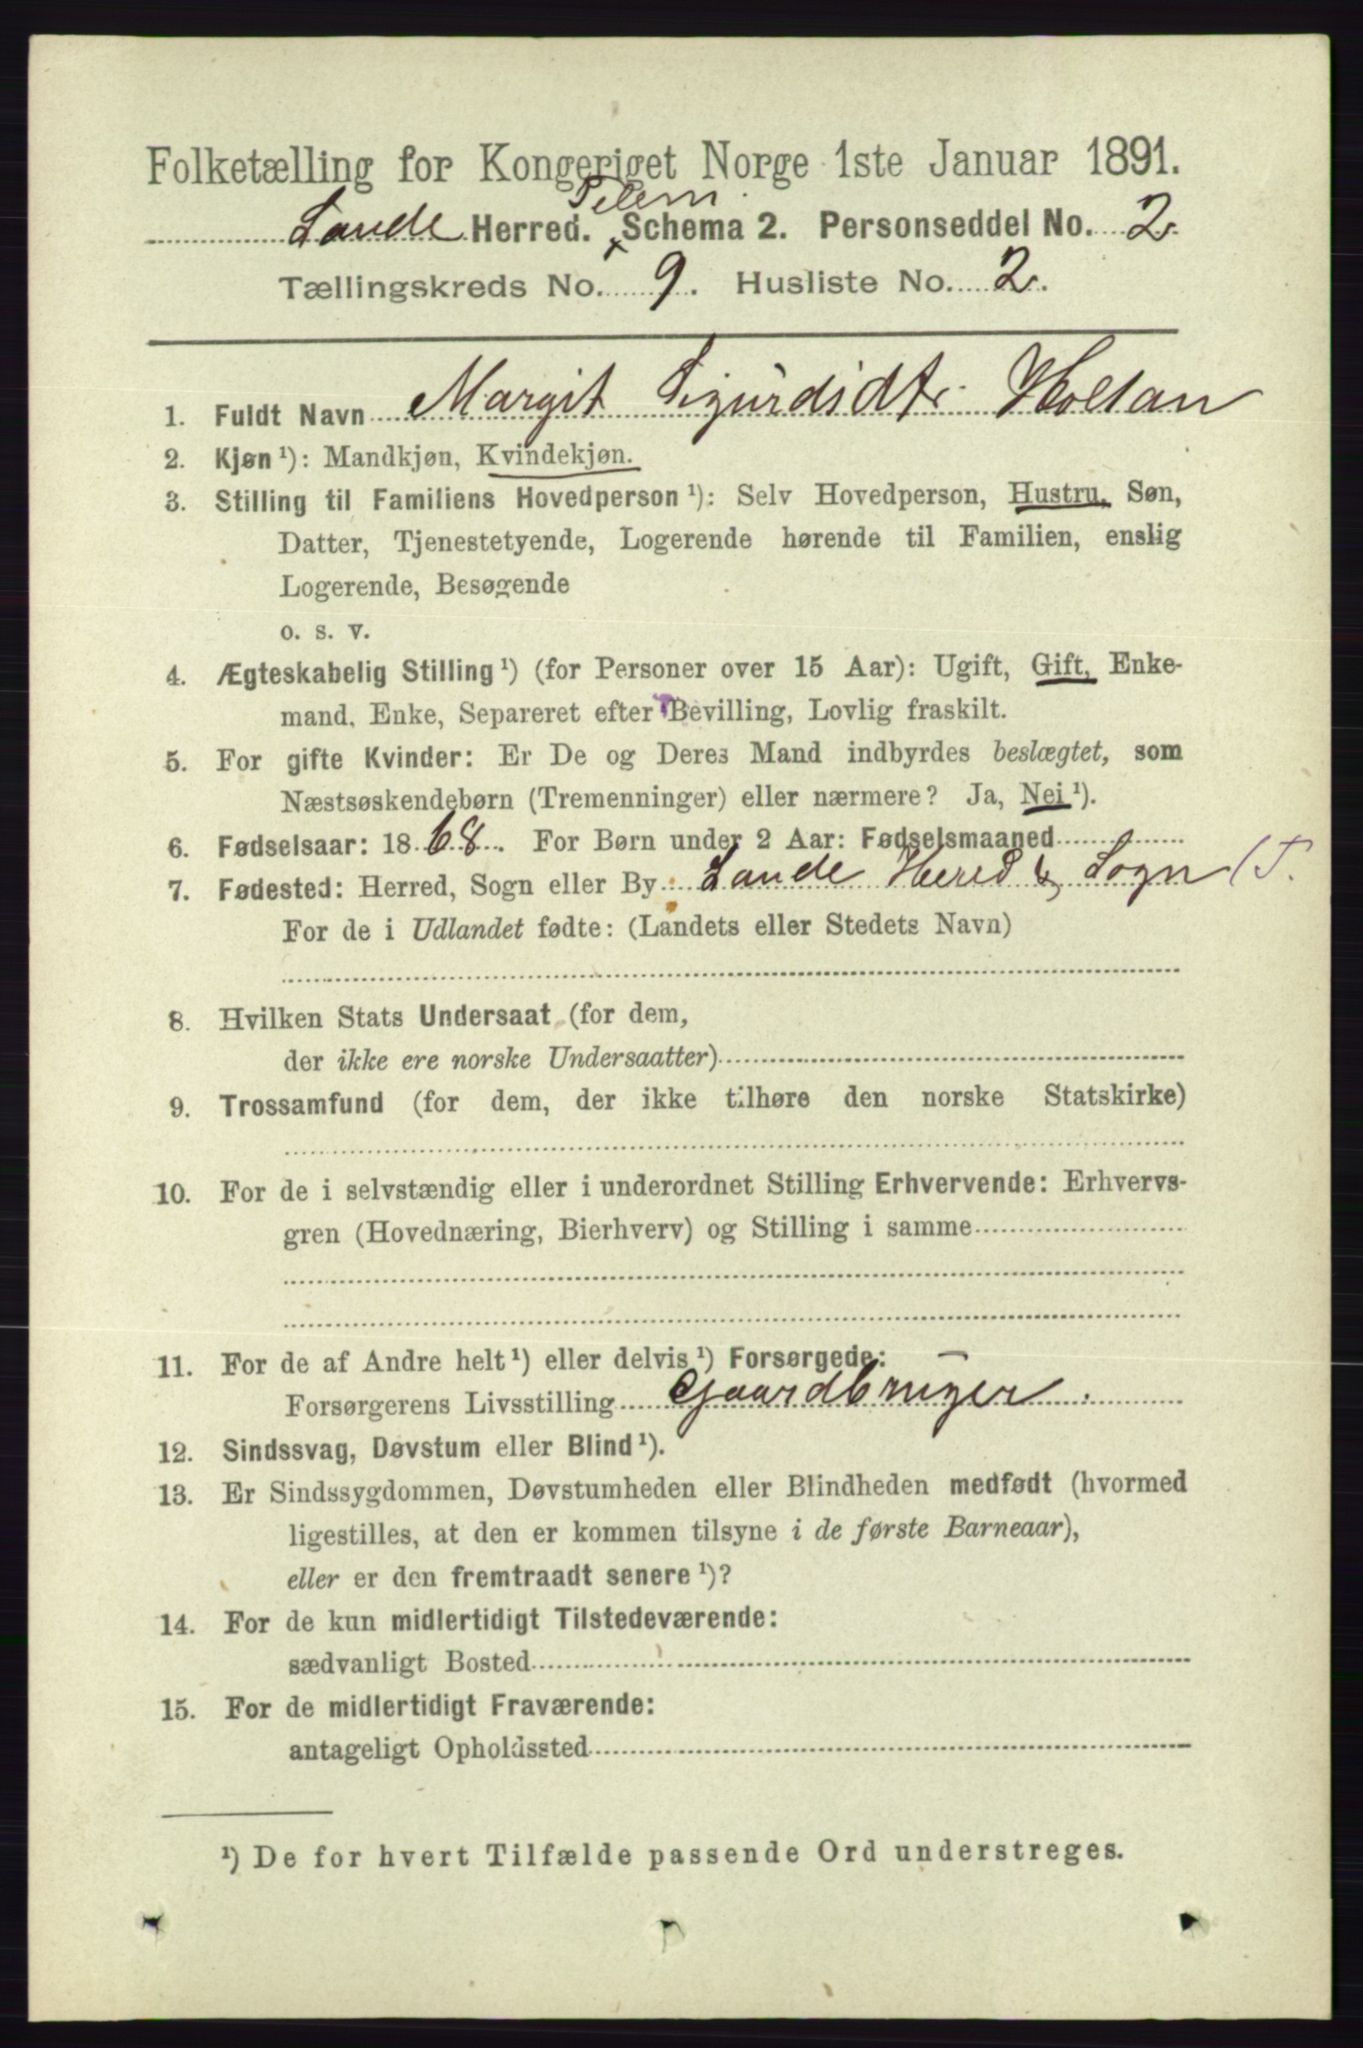 Folketælling for Kongeriget Norge 1ste Januar 1891.
Telem.
Laude Herred. Schema 2. Personseddel No. 2.
Tællingskreds No. 9. Husliste No. 2.
1. Fuldt Navn Margit Sigurdsdtr. Holtan
2. Kjøn ¹): Mandkjøn, Kvindekjøn.
3. Stilling til Familiens Hovedperson ¹): Selv Hovedperson, Hustru, Søn,
Datter, Tjenestetyende, Logerende hørende til Familien, enslig
Logerende, Besøgende
o. s. v.
4. Ægteskabelig Stilling ¹) (for Personer over 15 Aar): Ugift, Gift, Enke-
mand, Enke, Separeret efter Bevilling, Lovlig fraskilt.
5. For gifte Kvinder: Er De og Deres Mand indbyrdes beslægtet, som
Næstsøskendebørn (Tremenninger) eller nærmere? Ja, Nei ¹).
6. Fødselsaar: 1868. For Børn under 2 Aar: Fødselsmaaned
7. Fødested: Herred, Sogn eller By Laude Hered & Sogn (T.
For de i Udlandet fødte: (Landets eller Stedets Navn)
8. Hvilken Stats Undersaat (for dem,
der ikke ere norske Undersaatter)
9. Trossamfund (for dem, der ikke tilhøre den norske Statskirke)
10. For de i selvstændig eller i underordnet Stilling Erhvervende: Erhvervs-
gren (Hovednæring, Bierhverv) og Stilling i samme
11. For de af Andre helt ¹) eller delvis ¹) Forsørgede:
Forsørgerens Livsstilling Gaardbruger.
12. Sindssvag, Døvstum eller Blind ¹).
13. Er Sindssygdommen, Døvstumheden eller Blindheden medfødt (hvormed
ligestilles, at den er kommen tilsyne i de første Barneaar),
eller er den fremtraadt senere ¹)?
14. For de kun midlertidigt Tilstedeværende:
sædvanligt Bosted
15. For de midlertidigt Fraværende:
antageligt Opholdssted
¹) De for hvert Tilfælde passende Ord understreges.